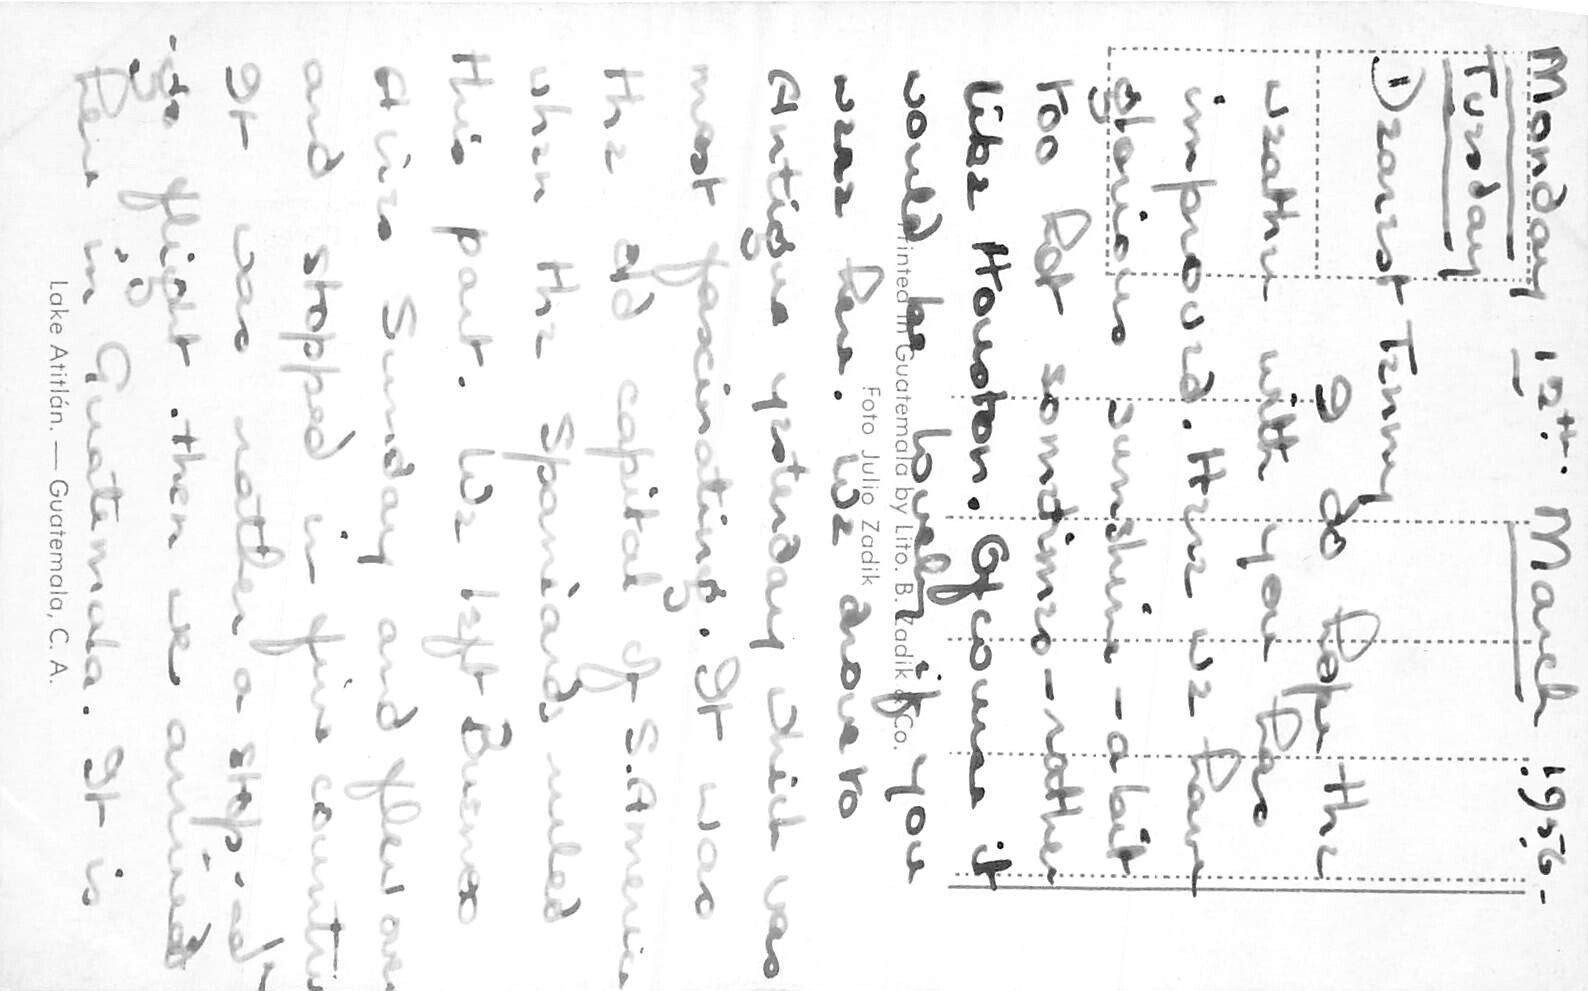 Monday 12th. March 1956-
Tuesday
Dearest Tenny
I do hope the
weather with you has
improved. Here we have
glorious sunshine - a bit
too hot sometimes - rather
like Houston. Of course it
would be lovely if you
were here. We drove to
Antigua yesterday which was
most fascinating. It was
the old capital of S. America
when the Spaniards ruled
this part. We left Buenos
Aires Sunday and flew over
and stopped in five countries
It was rather a stop-and
-go flight. then we arrived
here in Guatemala. It is
Printed in Guatemala by Lito. B. Zadik & Co.
Foto Julio Zadik
Lake Atitlán. — Guatemala, C. A.